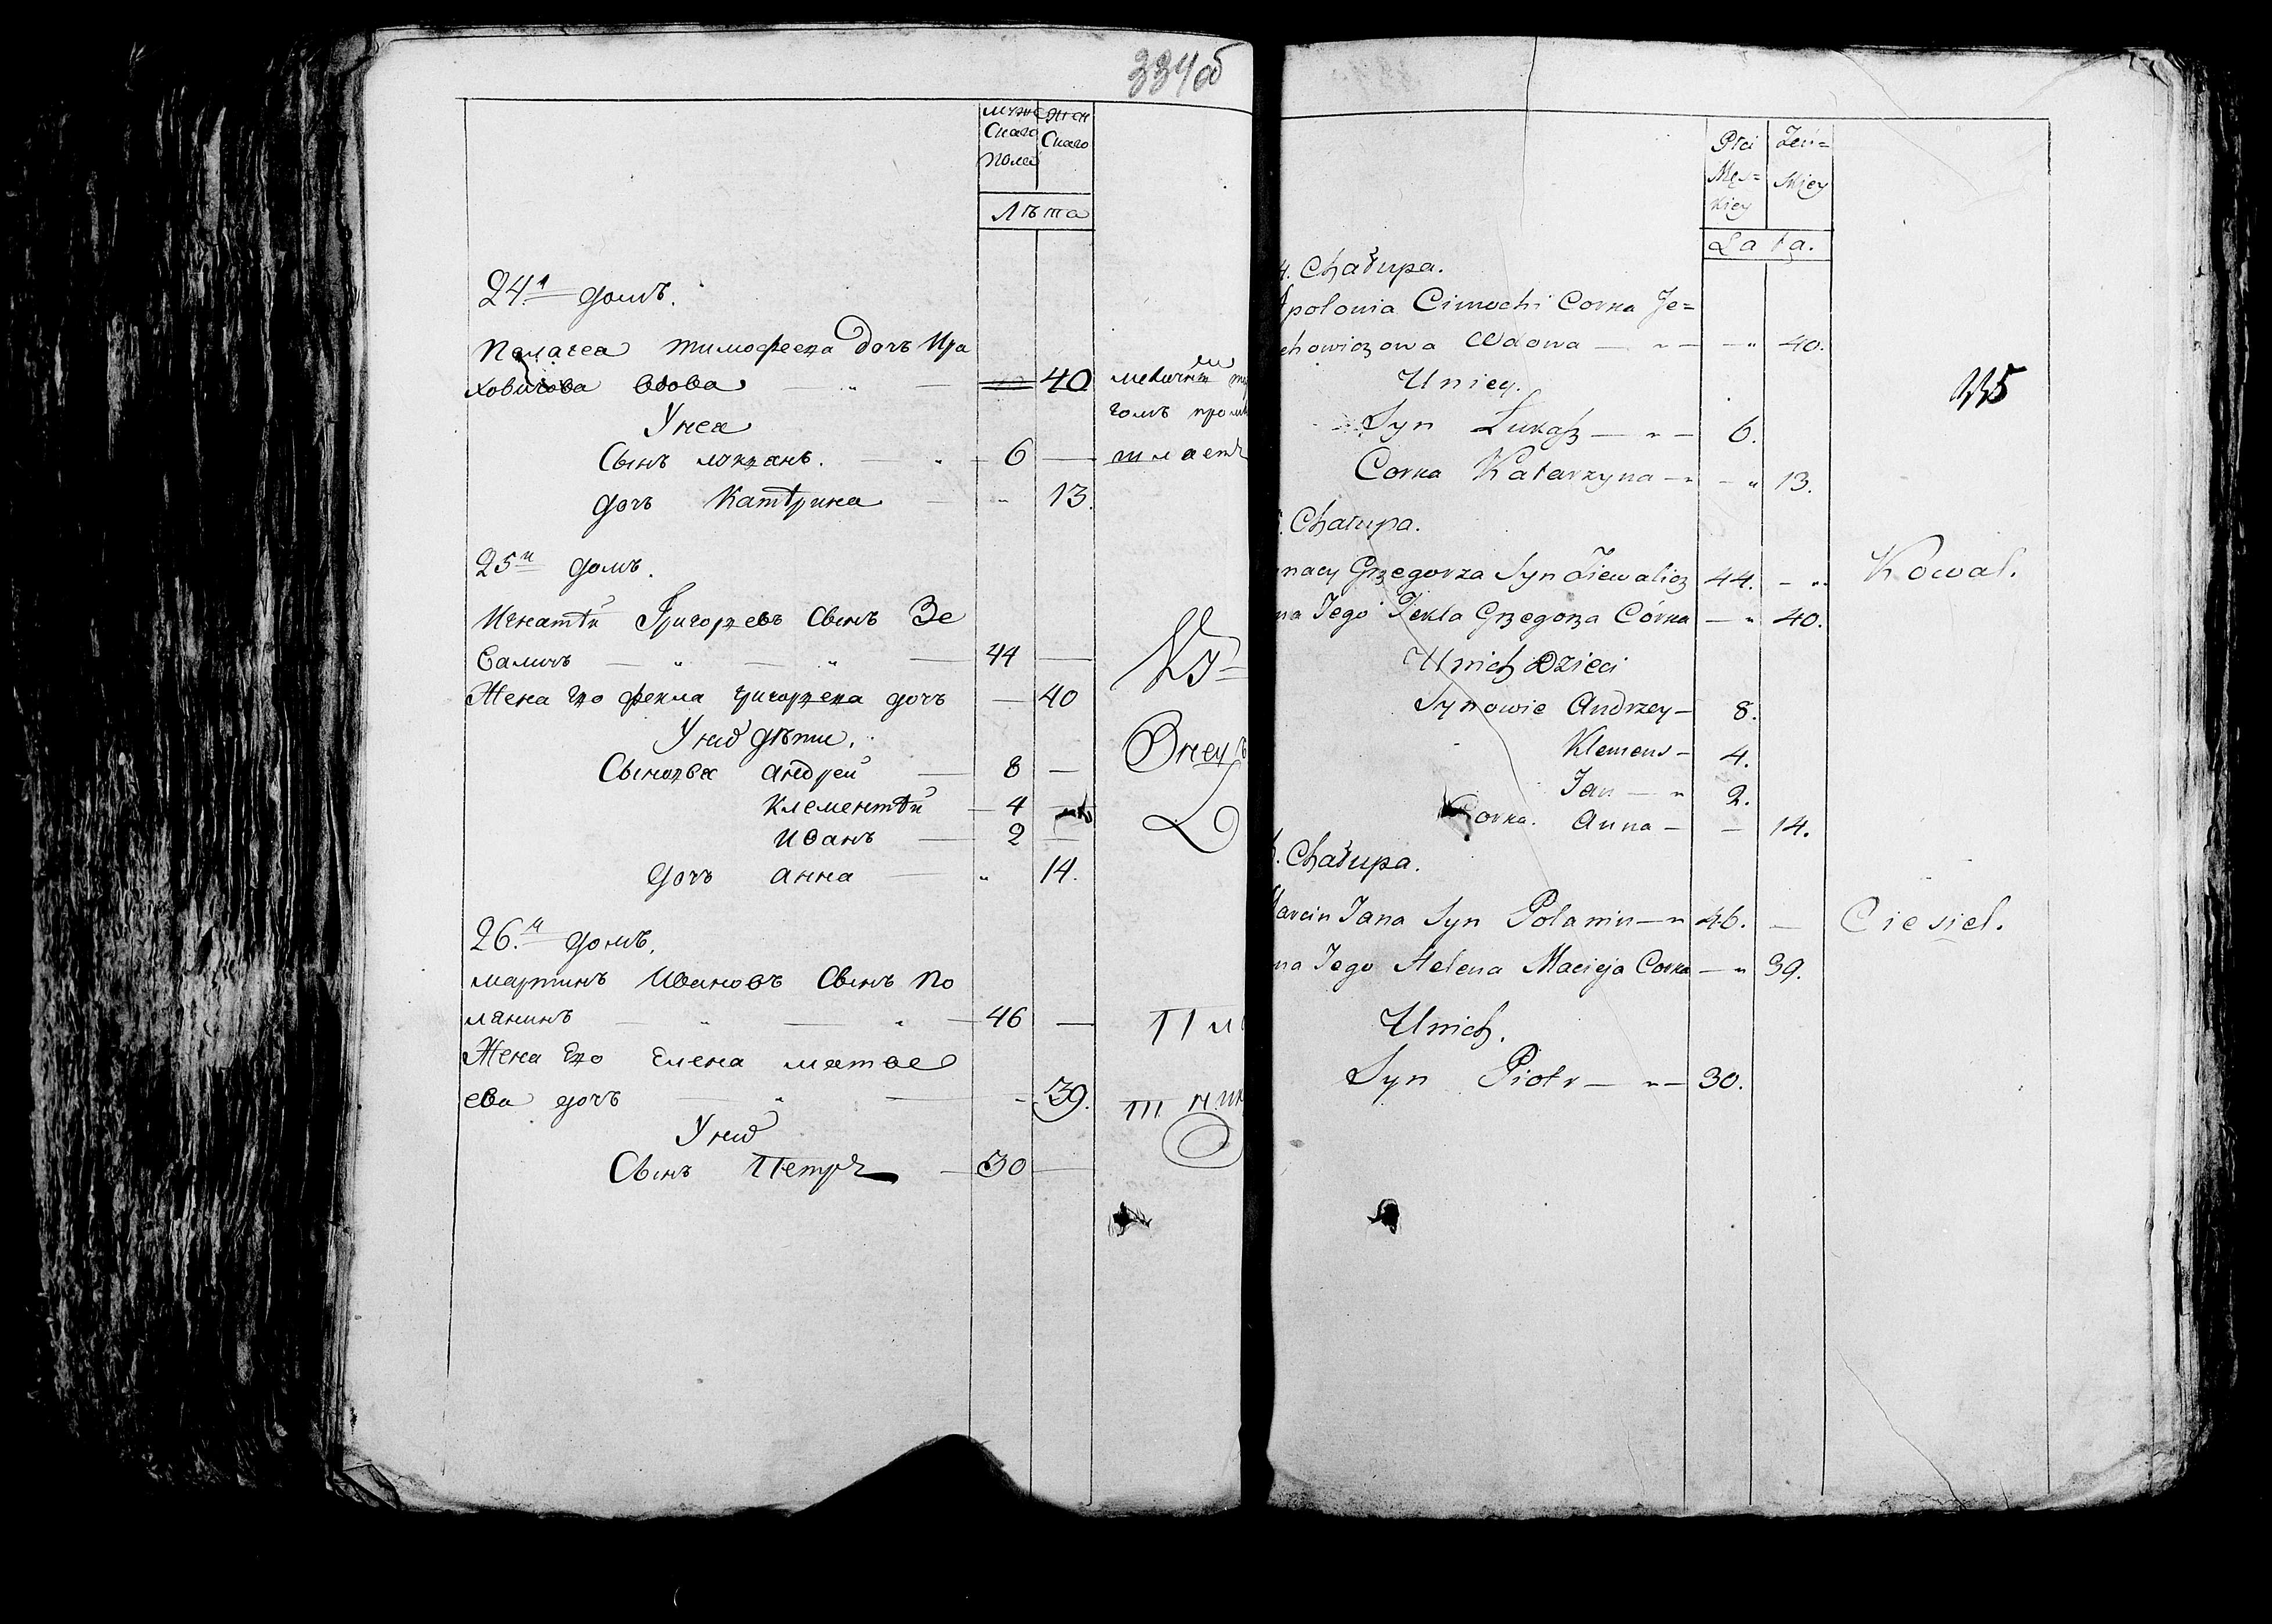 334об
муж
скаго
пола
жен
скаго
Лѣта
24.й домъ.
Пелагея тимофеева дочь Яра
ховичова вдова — " — 40
мелочнымъ
гомъ
У нея
Сынъ лукьянъ. — " — 6 —
дочь Катѣрина — " 13.
25й домъ.
Игнатѣй Григорьевъ Сынъ Зе
валичъ — " — " — 44 —
Жена Его фекла григорьева дочь — 40
Ку=
Унихъ дѣти.
Сыновья андрей — 8 —
Знецъ
Клементѣй — 4 —
Иванъ — 2 —
дочь анна — " 14.
26.й домъ.
мартинъ Ивановъ Сынъ По
ланинъ — " — " — 46 —
Пло
Жена Его Елена матве
ева дочь — " — 39.
тник
Унихъ
Сынъ Петръ — 30 —
Płci
Męs=
kiey
Żeń=
skiey
Lata.
4. Chałupa.
Apolonia Cimochi Corka Je=
chowiczowa Wdowa — " — — " 40.
335
Uniey.
Syn Łukasz — " — 6.
Corka Katarzyna — " — " 13.
. Chałupa.
nacy Grzegorza Syn Ziewalicz 44. — "
Kowal.
na Jego Tekla Grzegorza Córka — " 40.
Unich Dzieci
Synowie Andrzey — 8.
Klemens — 4.
Jan — " 2.
Corka. Anna — — 14.
. Chałupa.
Marcin Jana Syn Polanin — " 46. —
Ciesiel.
na Jego Helena Macieja Corka — " 39.
Unich.
Syn Piotr — " — 30.